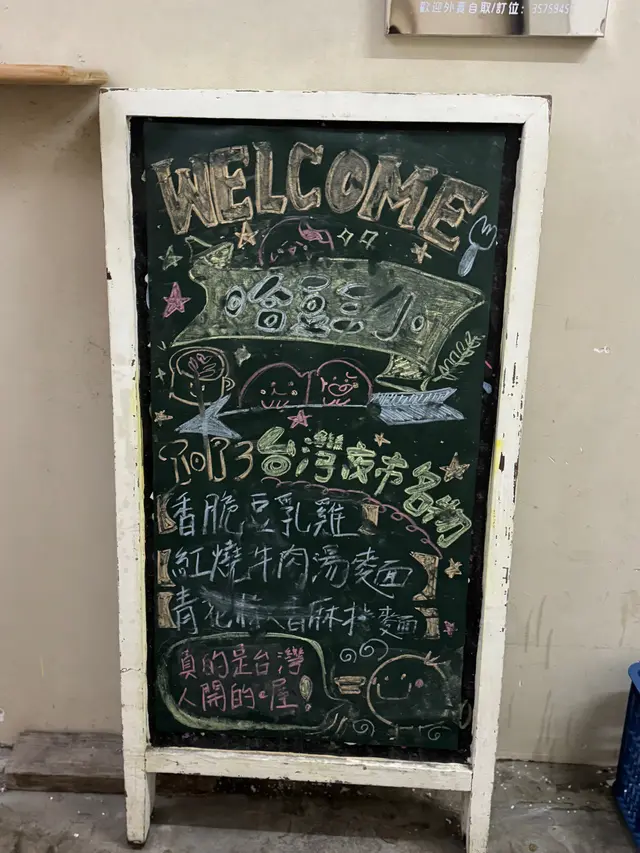 歡迎外賣自取/訂位:
WELCOME
哈豆三小
TOP3台灣夜市名物
【香脆豆乳雞】
【紅燒牛肉湯麵】
【青花椒 麻 麵】
真的是台灣
人開的喔!